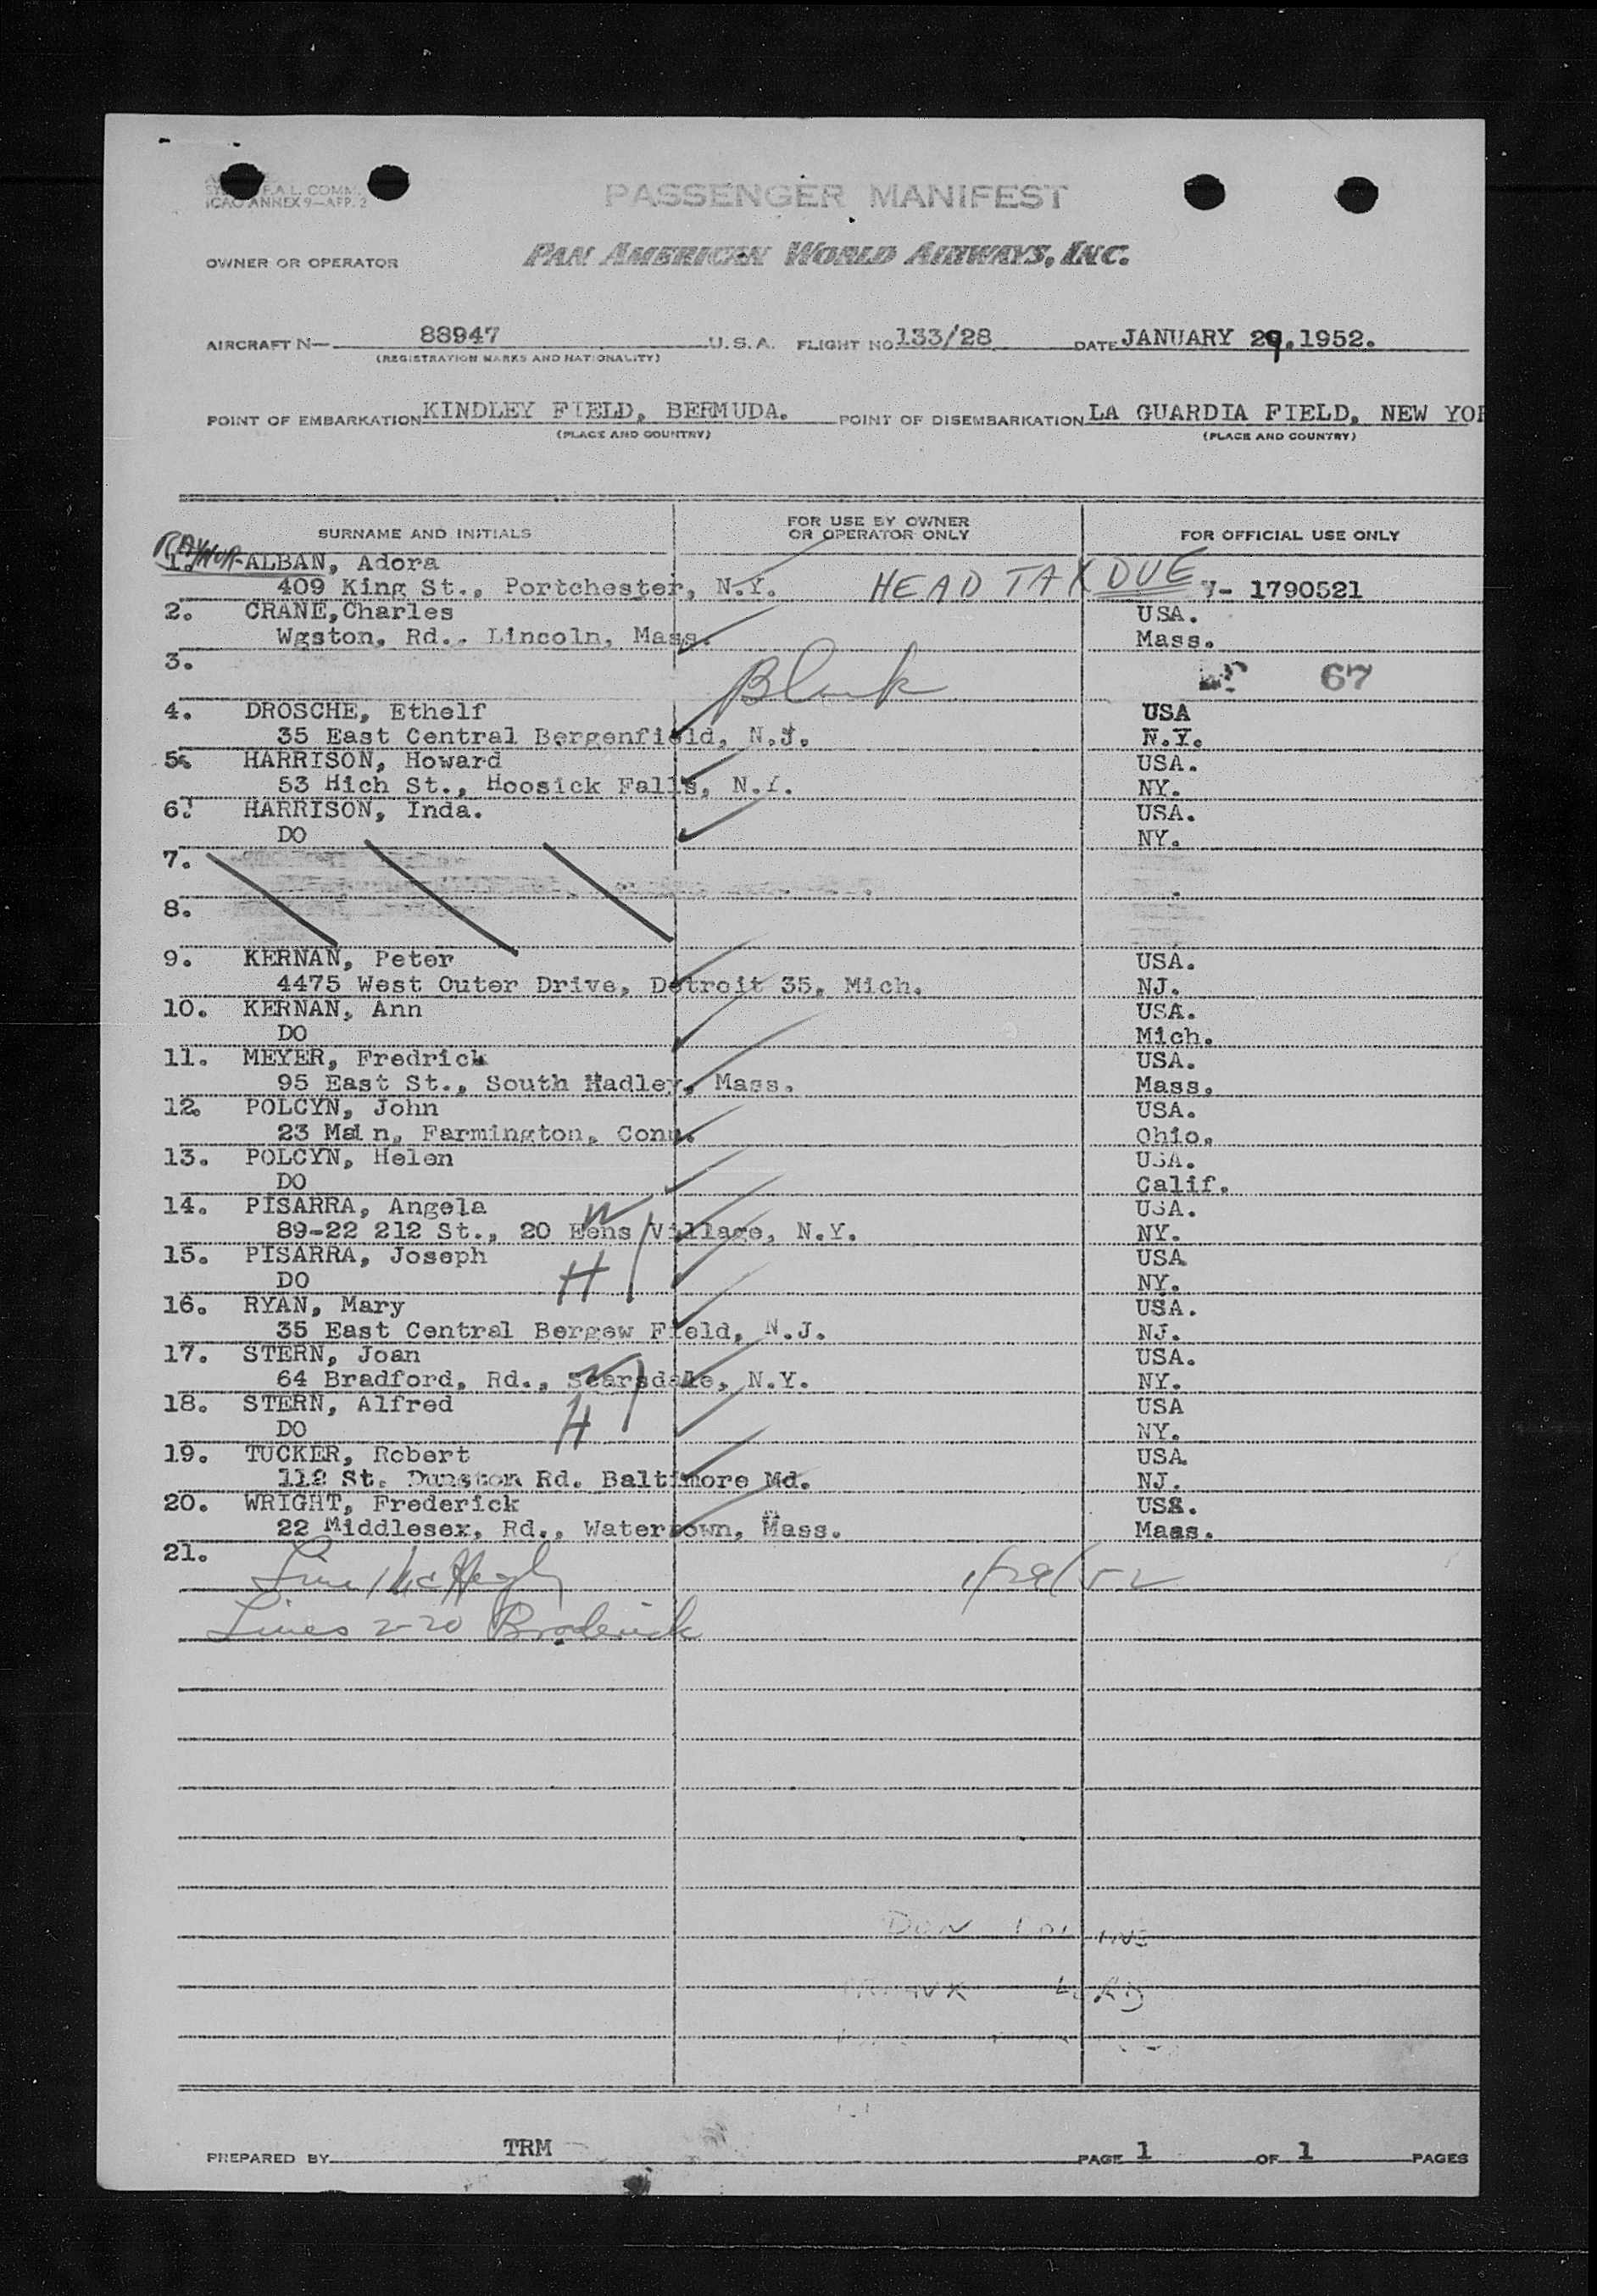 F.A.L. COMM.
ICAO ANNEX 9—APP. 2
PASSENGER MANIFEST
OWNER OR OPERATOR PAN AMERICAN WORLD AIRWAYS, INC.
AIRCRAFT N— 88947 U.S.A. FLIGHT NO 133/28 DATE JANUARY 29.1952.
(REGISTRATION MARKS AND NATIONALITY)
POINT OF EMBARKATION KINDLEY FIELD, BERMUDA. POINT OF DISEMBARKATION LA GUARDIA FIELD, NEW YOR
(PLACE AND COUNTRY) (PLACE AND COUNTRY)
SURNAME AND INITIALS FOR USE BY OWNER OR OPERATOR ONLY FOR OFFICIAL USE ONLY
1. ALBAN, Adora
409 King St., Portchester, N.Y. HEAD TAX DUE - 1790521
2. CRANE,Charles USA.
Wgston, Rd., Lincoln, Mass. Mass.
3. Blank 67
4. DROSCHE, Ethelf USA
35 East Central Bergenfield, N.J. N.Y.
5. HARRISON, Howard USA.
53 Hich St., Hoosick Falls, N.Y. NY.
6. HARRISON, Inda. USA.
DO NY.
7.
8.
9. KERNAN, Peter USA.
4475 West Outer Drive, Detroit 35, Mich. NJ.
10. KERNAN, Ann USA.
DO Mich.
11. MEYER, Fredrick USA.
95 East St., South Hadley, Mass. Mass.
12. POLCYN, John USA.
23 Main, Farmington, Conn. Ohio.
13. POLCYN, Helen USA.
DO Calif.
14. PISARRA, Angela W USA.
89-22 212 St., 20 Eens Village, N.Y. NY.
15. PISARRA, Joseph H USA
DO NY.
16. RYAN, Mary USA.
35 East Central Bergew Field, N.J. NJ.
17. STERN, Joan W USA.
64 Bradford, Rd., Scarsdale, N.Y. NY.
18. STERN, Alfred H USA
DO NY.
19. TUCKER, Robert USA.
112 St. Dunston Rd. Baltimore Md. NJ.
20. WRIGHT, Frederick USA.
22 Middlesex, Rd., Watertown, Mass. Mass.
21. Line 1 McHugh 1/29/52
Lines 2-20 Broderick
PREPARED BY TRM PAGE 1 OF 1 PAGES